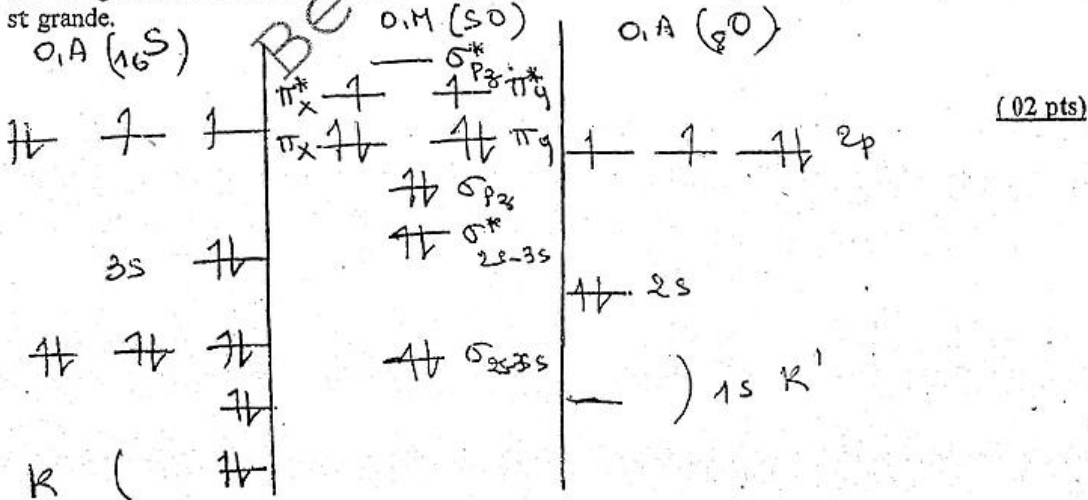 st grande.
O.A (₁₆S)
O.M (SO)
O.A (₈O)
Be
σ*pz
π*x π*y
(02 pts)
πx πy
2p
σpz
σ*2s-3s
3s
2s
σ2s-3s
) 1s K'
K (